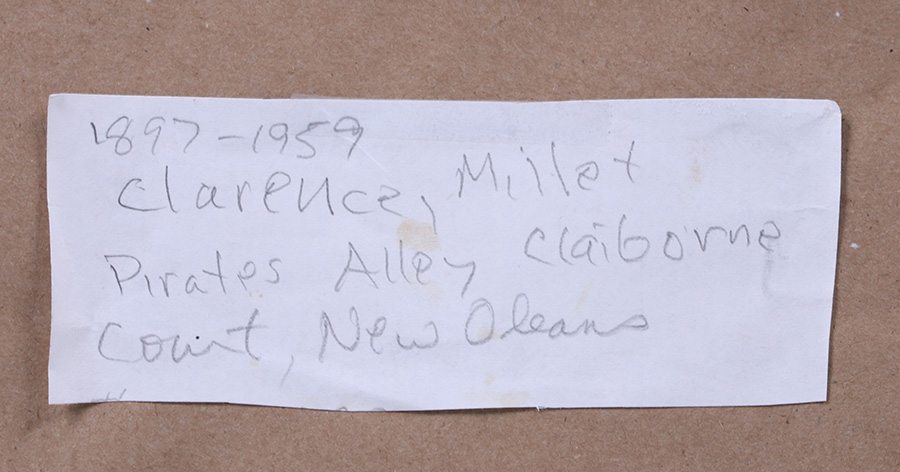 1897-1959
Clarence, Millet
Pirates Alley Claiborne
Court, New Oleans